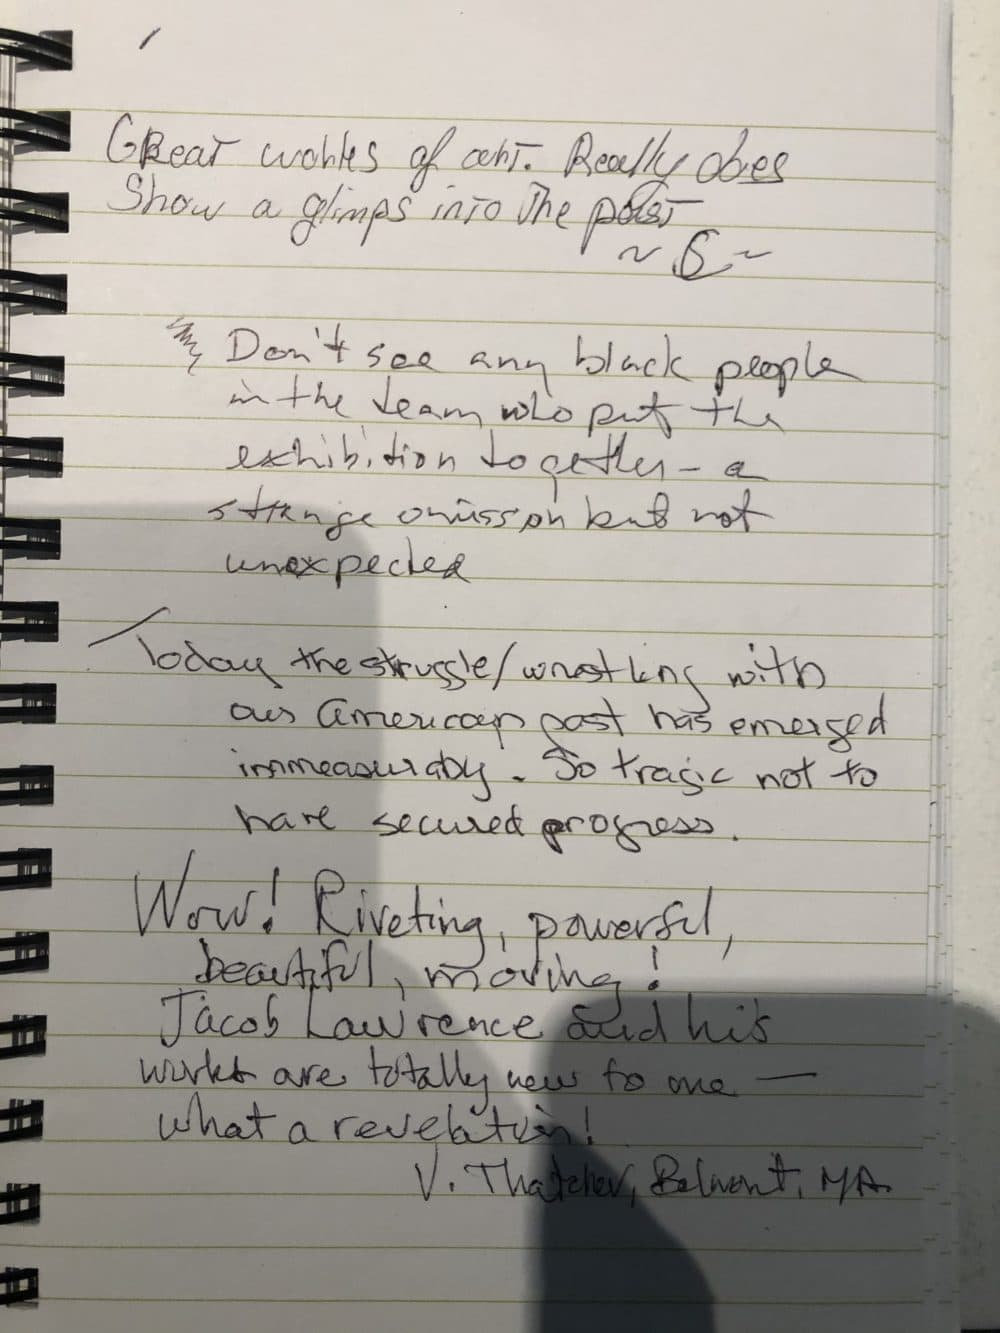 Great works of art. Really does
Show a glimps into The past
~ S ~
Don't see any black people
in the team who put the
exhibition together - a
strange omission but not
unexpected
Today the struggle/wrestling with
our American past has emerged
immeasurably. So tragic not to
have secured progress.
Wow! Riveting, powerful,
beautiful, moving!
Jacob Lawrence and his
works are totally new to me —
what a revelation!
V. Thatcher, Belmont, MA.